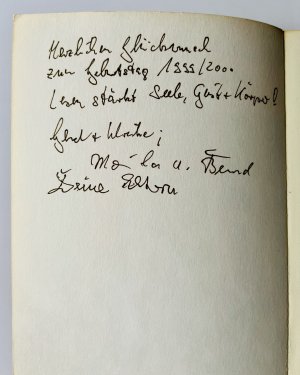 Herzlichen Glückwunsch
zum Geburtstag 1999/2000
Lesen stärkt Seele, Geist + Körper!
a. Bernd
Deine Eltern